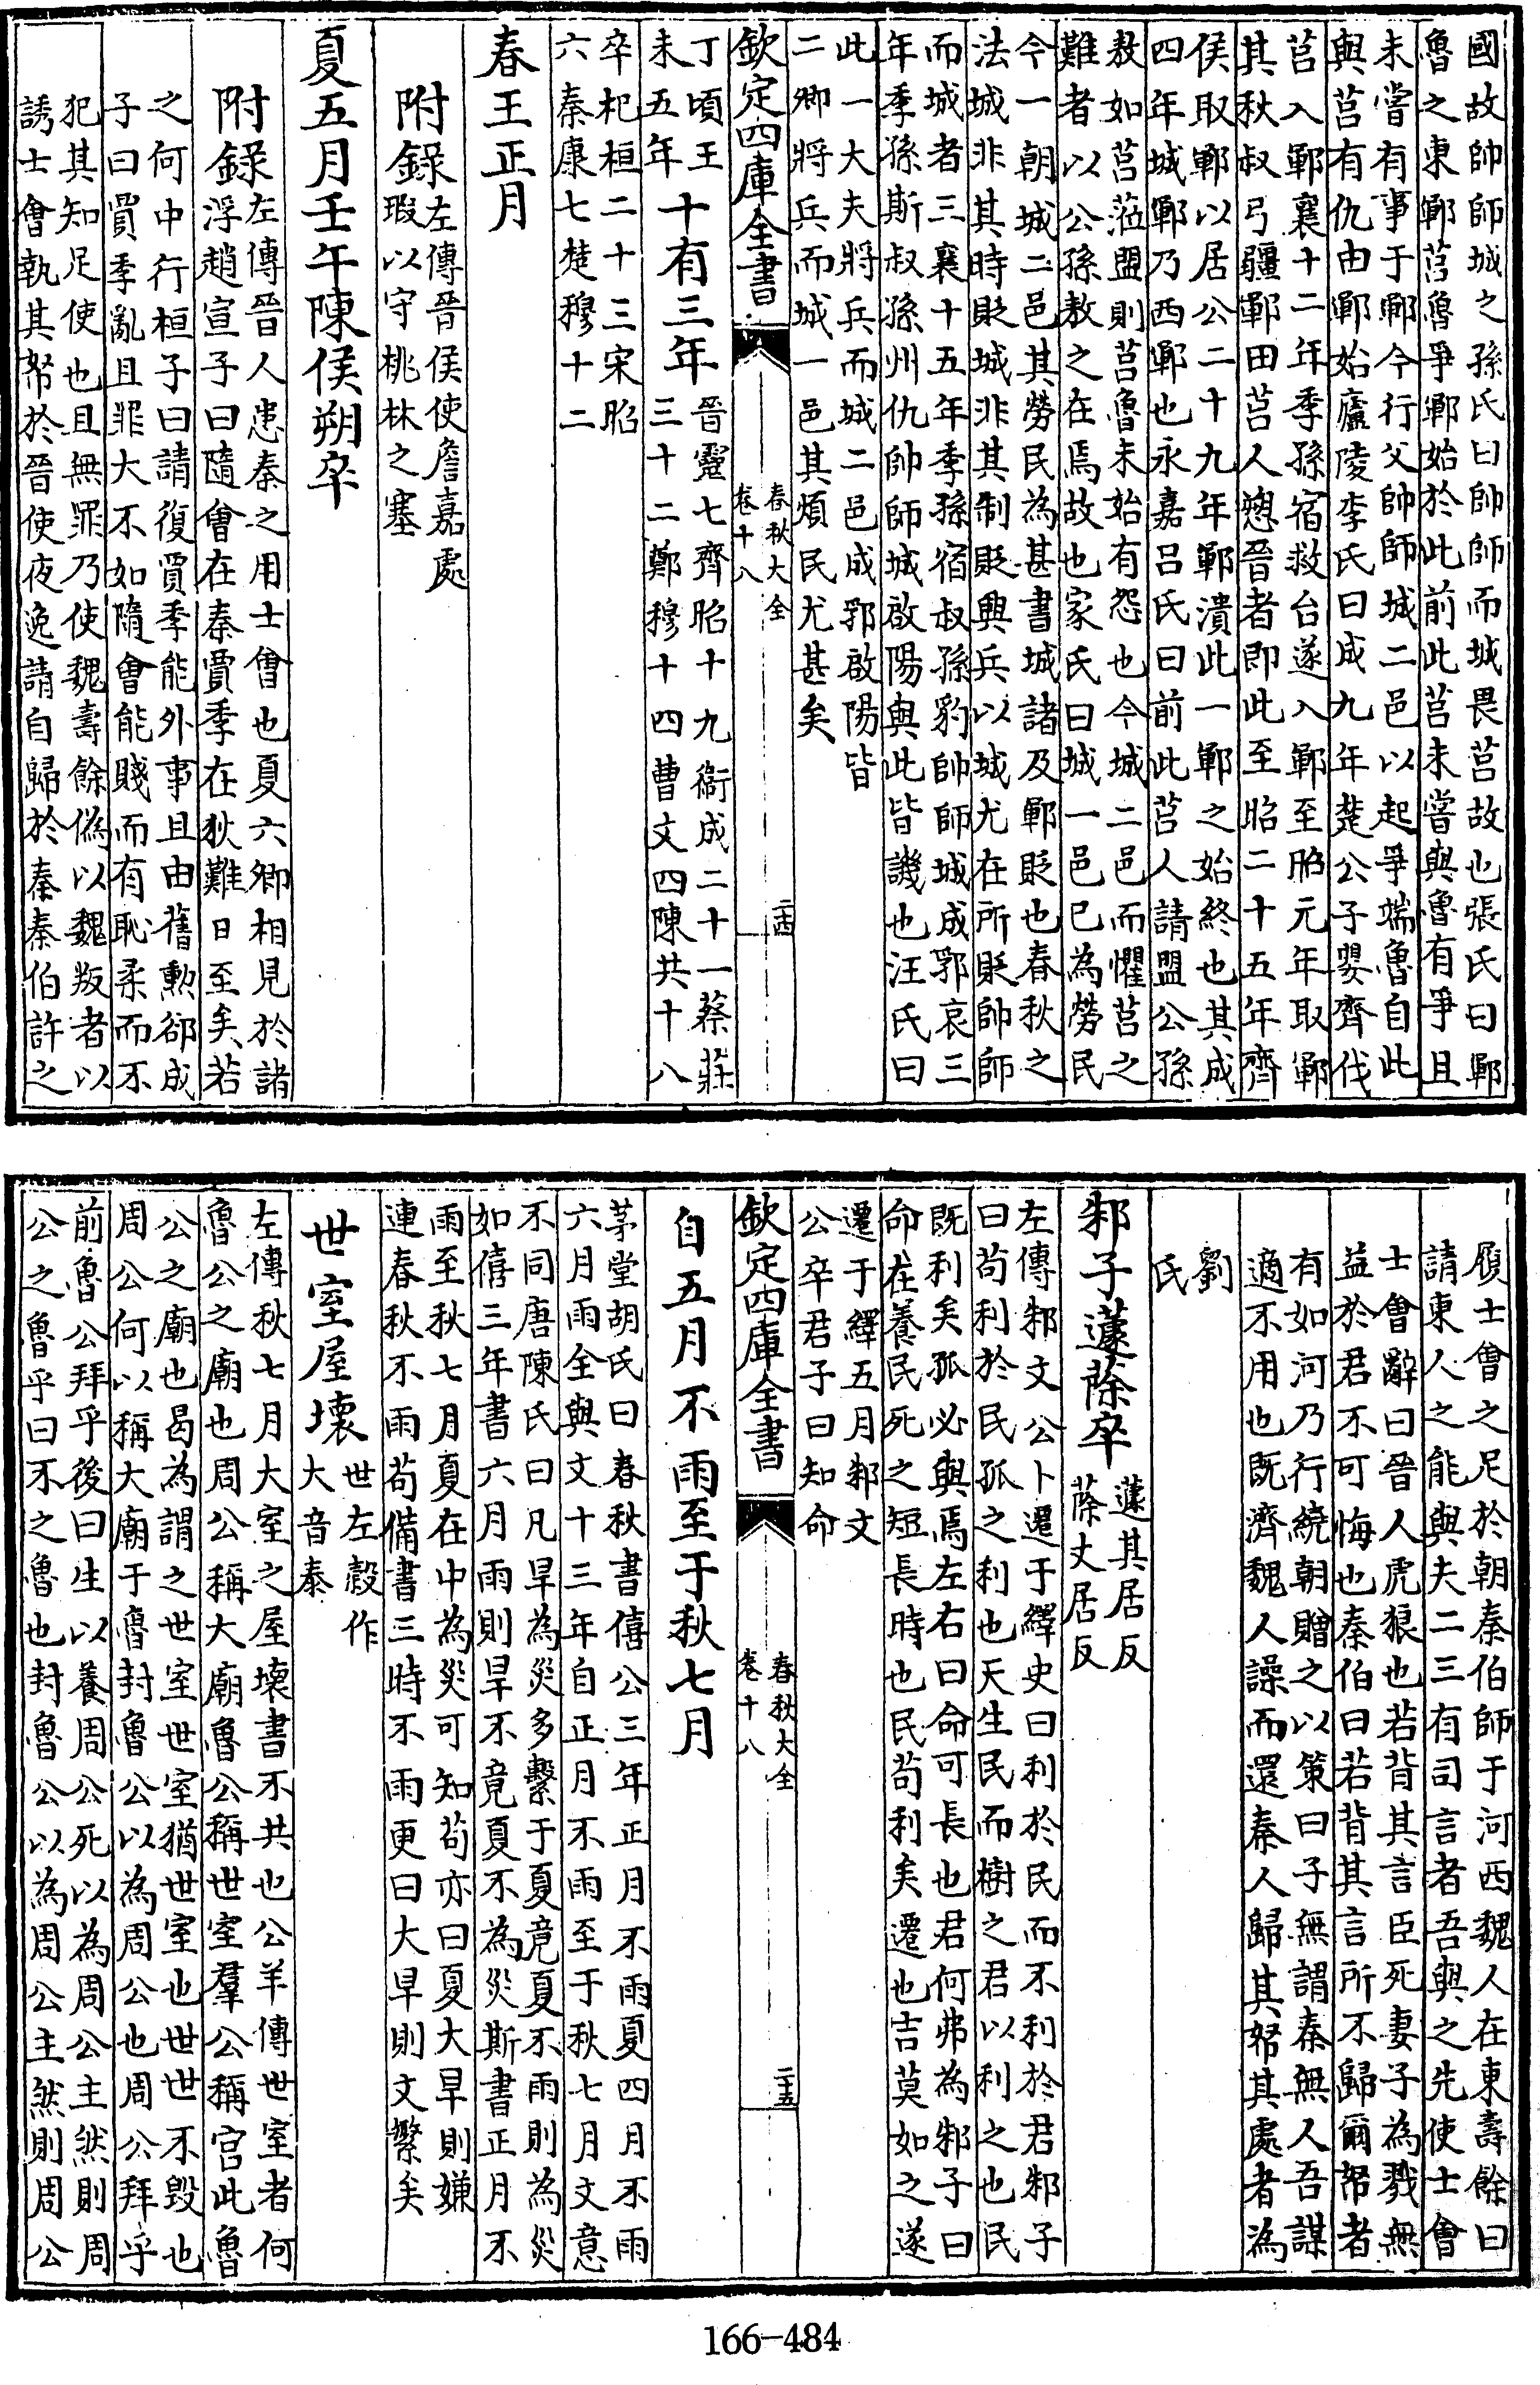 國故帥師城之孫氏曰帥師而城畏莒故也張氏曰鄆
魯之東鄆莒魯爭鄆始於此前此莒未嘗與魯有爭且
未嘗有事于鄆今行父帥師城二邑以起爭端魯自此
與莒有仇由鄆始廬陵李氏曰成九年楚公子嬰齊伐
莒入鄆襄十二年季孫宿救台遂入鄆至昭元年取鄆
其秋叔弓疆鄆田莒人愬晉者即此至昭二十五年齊
侯取鄆以居公二十九年鄆潰此一鄆之始終也其成
四年城鄆乃西鄆也永嘉呂氏曰前此莒人請盟公孫
敖如莒蒞盟則莒魯未始有怨也今城二邑而懼莒之
難者以公孫敖之在焉故也家氏曰城一邑已為勞民
今一朝城二邑其勞民為甚書城諸及鄆貶也春秋之
法城非其時貶城非其制貶興兵以城尤在所貶帥師
而城者三襄十五年季孫宿叔孫豹帥師城成郛哀三
年季孫斯叔孫州仇帥師城啟陽與此皆譏也汪氏曰
此一大夫將兵而城二邑成郛啟陽皆
二卿將兵而城一邑其煩民尤甚矣
欽定四庫全書
春秋大全
卷十八
二十四
丁頃王
未五年
十有三年
晉靈七齊昭十九衞成二十一蔡莊
三十二鄭穆十四曹文四陳共十八
卒杞桓二十三宋昭
六秦康七楚穆十二
春王正月
附錄
左傳晉侯使詹嘉處
瑕以守桃林之塞
夏五月壬午陳侯朔卒
附錄
左傳晉人患秦之用士會也夏六卿相見於諸
浮趙宣子曰隨會在秦賈季在狄難日至矣若
之何中行桓子曰請復賈季能外事且由舊勲郤成
子曰賈季亂且罪大不如隨會能賤而有恥柔而不
犯其知足使也且無罪乃使魏壽餘偽以魏叛者以
誘士會執其帑於晉使夜逸請自歸於秦秦伯許之
履士會之足於朝秦伯師于河西魏人在東壽餘曰
請東人之能與夫二三有司言者吾與之先使士會
士會辭曰晉人虎狼也若背其言臣死妻子為戮無
益於君不可悔也秦伯曰若背其言所不歸爾帑者
有如河乃行繞朝贈之以策曰子無謂秦無人吾謀
適不用也既濟魏人譟而還秦人歸其帑其處者為
劉
氏
邾子蘧蒢卒
蘧其居反
蒢丈居反
左傳邾文公卜遷于繹史曰利於民而不利於君邾子
曰苟利於民孤之利也天生民而樹之君以利之也民
既利矣孤必與焉左右曰命可長也君何弗為邾子曰
命在養民死之短長時也民苟利矣遷也吉莫如之遂
遷于繹五月邾文
公卒君子曰知命
欽定四庫全書
春秋大全
卷十八
二十五
自五月不雨至于秋七月
茅堂胡氏曰春秋書僖公三年正月不雨夏四月不雨
六月雨全與文十三年自正月不雨至于秋七月文意
不同唐陳氏曰凡旱為災多繫于夏竟夏不雨則為災
如僖三年書六月雨則旱不竟夏不為災斯書正月不
雨至秋七月夏在中為災可知苟亦曰夏大旱則嫌
連春秋不雨苟備書三時不雨更曰大旱則文繁矣
世室屋壞
世左穀作
大音泰
左傳秋七月大室之屋壞書不共也公羊傳世室者何
魯公之廟也周公稱大廟魯公稱世室羣公稱宫此魯
公之廟也曷為謂之世室世室猶世室也世世不毀也
周公何以稱大廟于魯封魯公以為周公也周公拜乎
前魯公拜乎後曰生以養周公死以為周公主然則周
公之魯乎曰不之魯也封魯公以為周公主然則周公
166-484